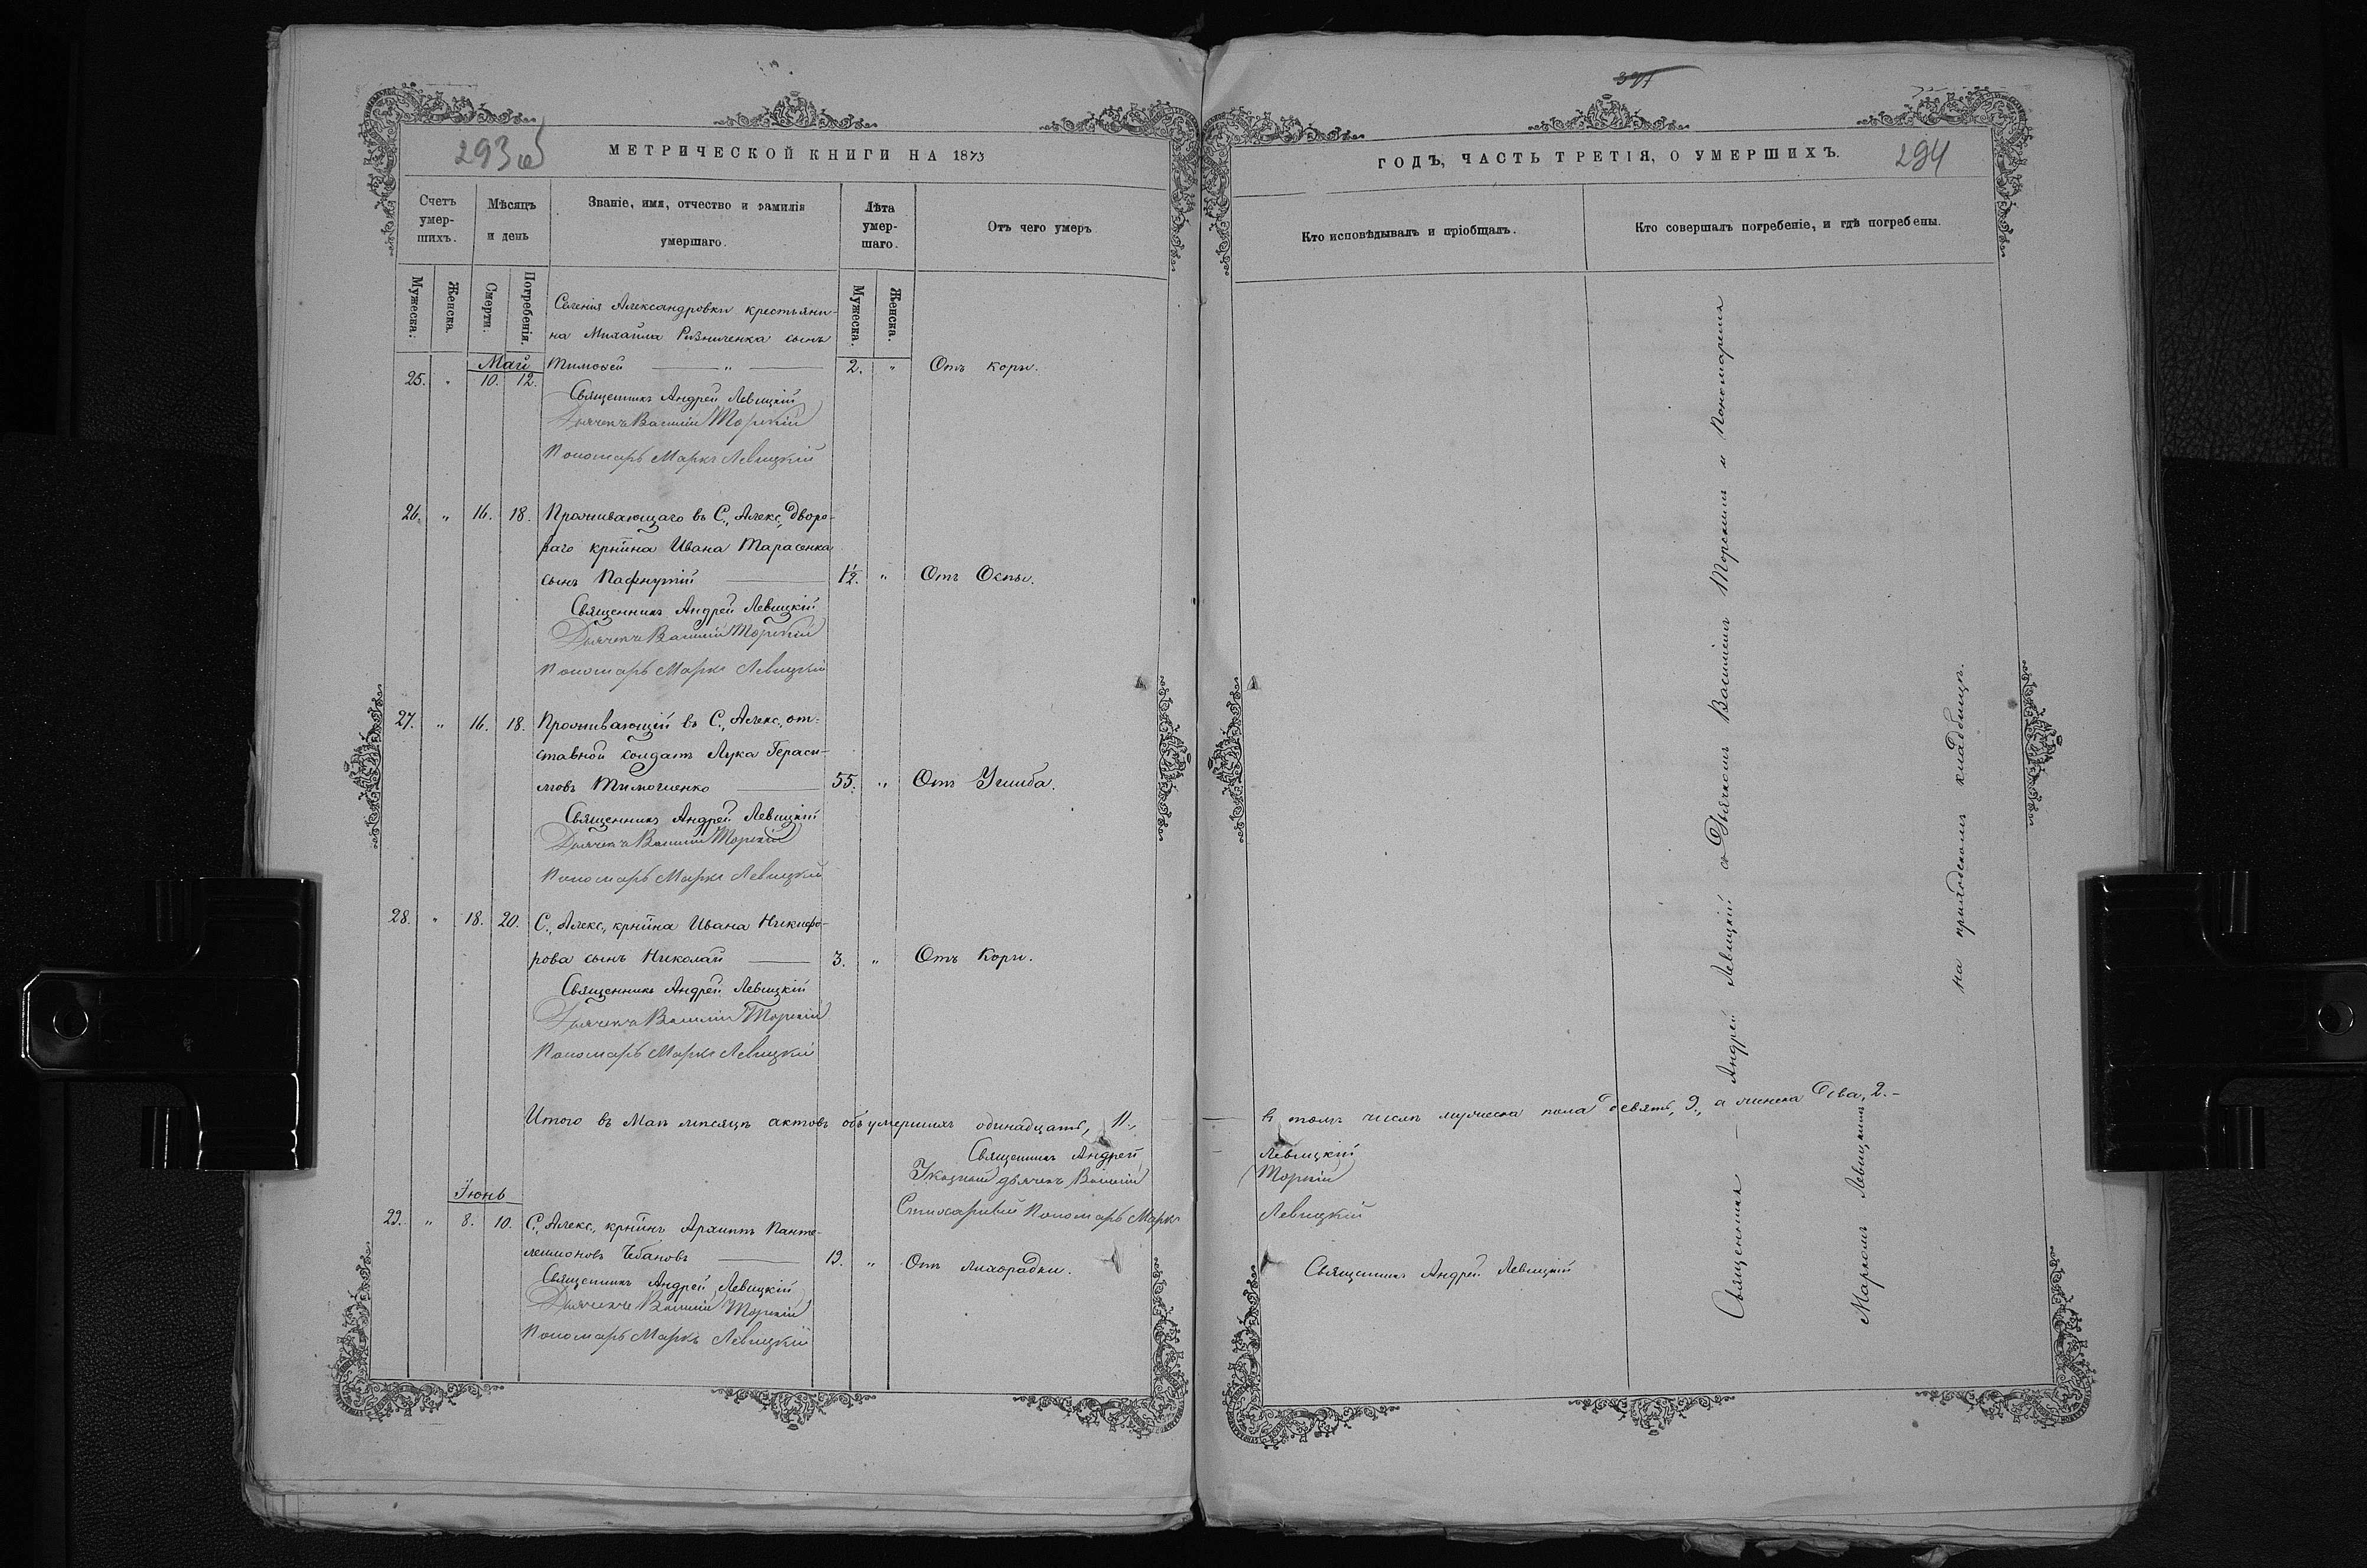 293 об
МЕТРИЧЕСКОЙ КНИГИ НА 1873
Счетъ умер-шихъ.
Мѣсяцъ и день
Званіе, имя, отчество и фамилія умершаго.
Лѣта умер-шаго.
Отъ чего умеръ
Мужеска.
Женска.
Смерти.
Погребенія.
Мужеска.
Женска.
Селенія Александровки крестьяни-
на Михаила Ризниченка сынъ
Май
25. " 10. 12. Тимофей " 2. " Отъ кори.
Священникъ Андрей Левицкій
Дьячекъ Василій Торскій
Пономарь Маркъ Левицкій
26. " 16. 18. Проживающаго въ С., Алекс., дворо-
ваго крнина Ивана Тарасенка
сынъ Пафнутій 1/2. " Отъ Оспы.
Священникъ Андрей Левицкій
Дьячекъ Василій Торскій
Пономарь Маркъ Левицкій
27. " 16. 18. Проживающій въ С., Алекс., от-
ставной солдатъ Лука Гераси-
мовъ Тимошенко 55. " Отъ Ушиба.
Священникъ Андрей Левицкій
Дьячекъ Василій Торскій
Пономарь Маркъ Левицкій
28. " 18. 20. С., Алекс., крнина Ивана Никифо-
рова сынъ Николай 3. " Отъ Кори.
Священникъ Андрей Левицкій
Дьячекъ Василій Торскій
Пономарь Маркъ Левицкій
Итого въ Маѣ мѣсяцѣ актовъ объ умершихъ одинадцать, 11.,
Священникъ Андрей
дьячекъ Василій
Пономарь Маркъ
Іюнь
29. " 8. 10. С., Алекс., крнинъ Архипъ Панте-
леимоновъ Чебановъ 19. " Отъ лихорадки.
Священникъ Андрей Левицкій
Дьячекъ Василій Торскій
Пономарь Маркъ Левицкій
294
ГОДЪ, ЧАСТЬ ТРЕТІЯ, О УМЕРШИХЪ.
Кто исповѣдывалъ и пріобщалъ.
Кто совершалъ погребеніе, и гдѣ погребены.
въ томъ числѣ мужеска пола девять, 9., а женска два, 2.-
Левицкій
Торскій
Левицкій
Священникъ Андрей Левицкій
Священникъ Андрей Левицкій съ Дьячкомъ Василіемъ Торскимъ и Пономаремъ
Маркомъ Левицкимъ
на приходскомъ кладбищѣ.